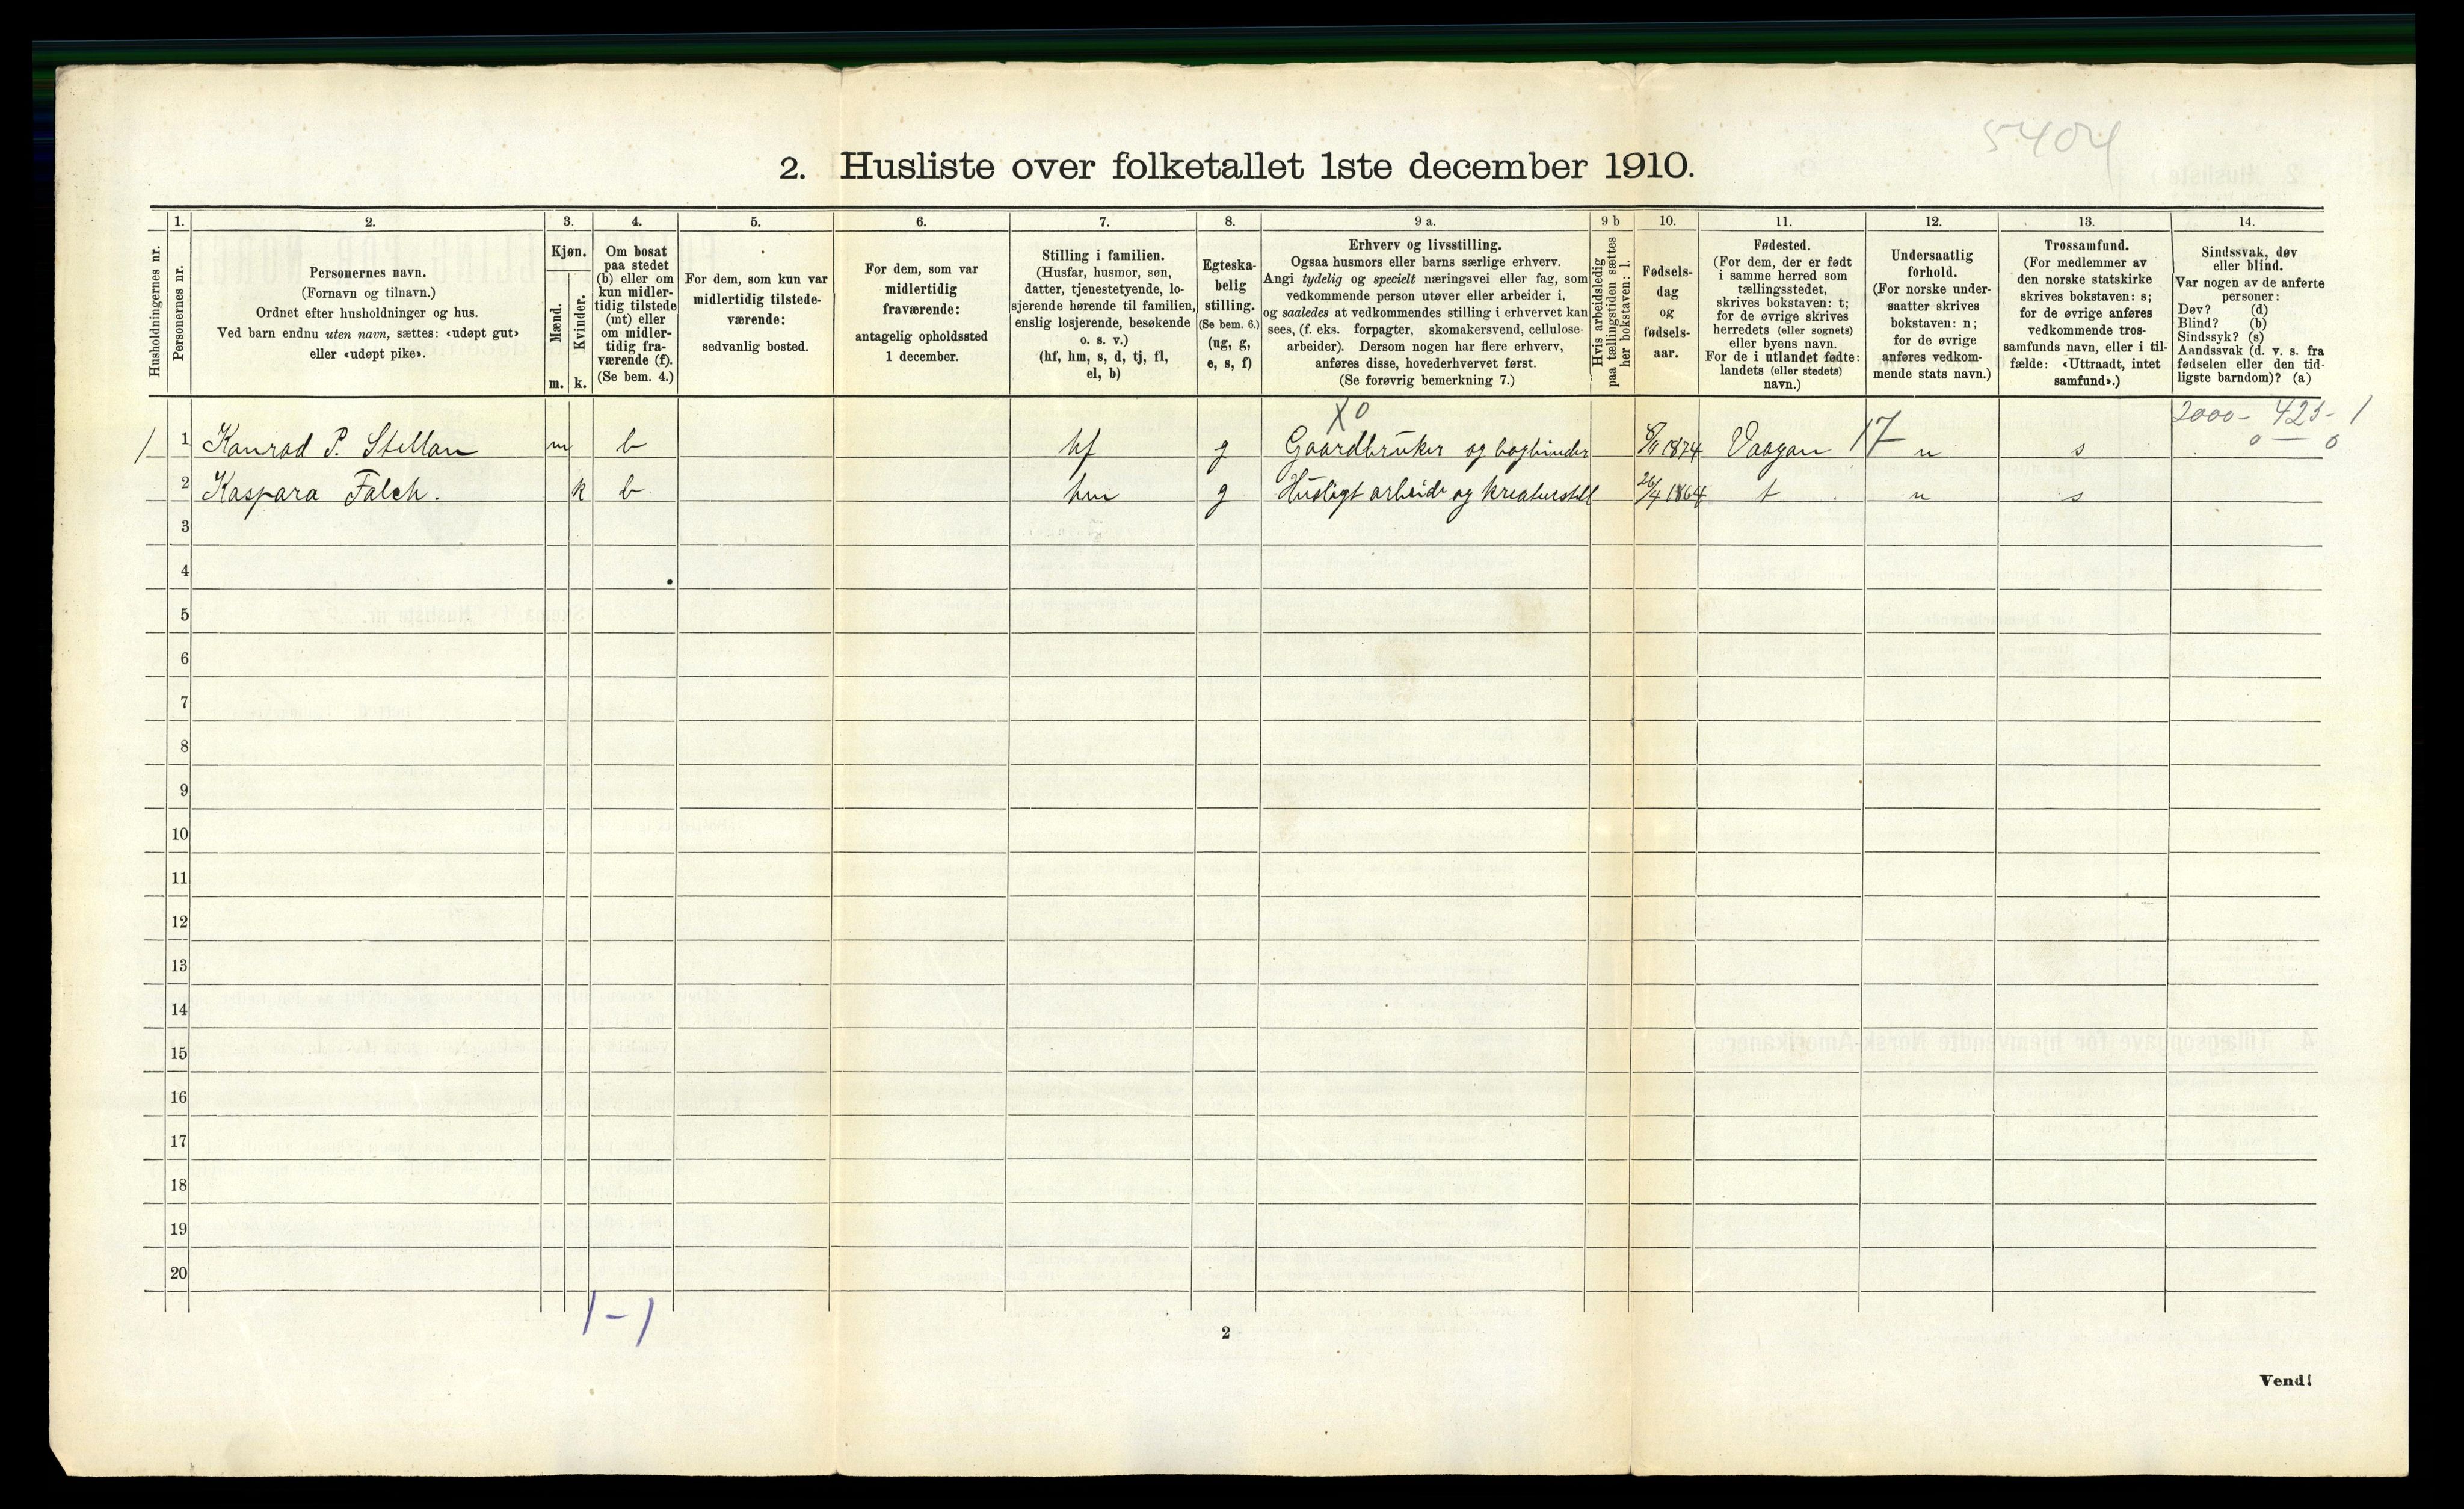 5404
2. Husliste over folketallet 1ste december 1910.
Husholdningernes nr.
1.
Personernes nr.
2.
Personernes navn.
(Fornavn og tilnavn.)
Ordnet efter husholdninger og hus.
Ved barn endnu uten navn, sættes: «udøpt gut»
eller «udøpt pike».
3.
Kjøn.
Mænd.
Kvinder.
m. k.
4.
Om bosat
paa stedet
(b) eller om
kun midler-
tidig tilstede
(mt) eller
om midler-
tidig fra-
værende (f).
(Se bem. 4.)
5.
For dem, som kun var
midlertidig tilstede-
værende:
sedvanlig bosted.
6.
For dem, som var
midlertidig
fraværende:
antagelig opholdssted
1 december.
7.
Stilling i familien.
(Husfar, husmor, søn,
datter, tjenestetyende, lo-
sjerende hørende til familien,
enslig losjerende, besøkende
o. s. v.)
(hf, hm, s, d, tj, fl,
el, b)
8.
Egteska-
belig
stilling.
(Se bem. 6.)
(ug, g,
e, s, f)
9 a.
Erhverv og livsstilling.
Ogsaa husmors eller barns særlige erhverv.
Angi tydelig og specielt næringsvei eller fag, som
vedkommende person utøver eller arbeider i,
og saaledes at vedkommendes stilling i erhvervet kan
sees, (f. eks. forpagter, skomakersvend, cellulose-
arbeider). Dersom nogen har flere erhverv,
anføres disse, hovederhvervet først.
(Se forøvrig bemerkning 7.)
9 b
Hvis arbeidsledig
paa tællingstiden sættes
her bokstaven: l.
10.
Fødsels-
dag
og
fødsels-
aar.
11.
Fødested.
(For dem, der er født
i samme herred som
tællingsstedet,
skrives bokstaven: t;
for de øvrige skrives
herredets (eller sognets)
eller byens navn.
For de i utlandet fødte:
landets (eller stedets)
navn.)
12.
Undersaatlig
forhold.
(For norske under-
saatter skrives
bokstaven: n;
for de øvrige
anføres vedkom-
mende stats navn.)
13.
Trossamfund.
(For medlemmer av
den norske statskirke
skrives bokstaven: s;
for de øvrige anføres
vedkommende tros-
samfunds navn, eller i til-
fælde: «Uttraadt, intet
samfund».)
14.
Sindssvak, døv
eller blind.
Var nogen av de anførte
personer:
Døv? (d)
Blind? (b)
Sindssyk? (s)
Aandssvak (d. v. s. fra
fødselen eller den tid-
ligste barndom)? (a)
X0
2000- 425- 1
0 — 0
1 1 Konrad P. Stellan m b hf g Gaardbruker og bogbinder 8/11 1874 Vaagan 17 n s
2 Kaspara Falch. k b hm g Husligt arbeide og kreaturstell 26/4 1864 t n s
3
4
5
6
7
8
9
10
11
12
13
14
15
16
17
18
19
20
1-1
2
Vend!